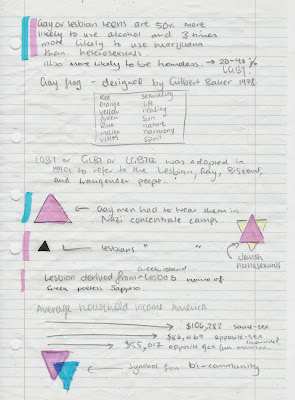 Gay or lesbian teens are 50% more
likely to use alcohol and 3 times
more likely to use marijuana
than heterosexuals.
also more likely to be homeless. → 20-40%
LGBT.
Gay flag - designed by Gilbert Baker 1978
Red sexuality
orange life
yellow healing
Green sun
Blue nature
indigo harmony
violet spirit
LGBT or GLBT or LGBTQ was adopted in
1990s to refer to the Lesbian, Gay, Bisexual,
and transgender people.
Gay men had to wear them in
Nazi concentrate camps
lesbians " "
Jewish
homosexuals
Greek island
Lesbian derived from Lesbos home of
Greek poetess Sappho.
Average household income America
→ $106,282 same-sex
→ $86,469 opposite-sex married
→ $55,017 opposite sex un married
Symbol for bi-community